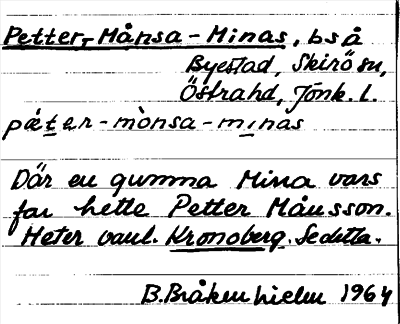 Petter-Månsa-Minas, bs å
Byestad, Skirö sn,
Östrahd, Jönk. l.
péter-mònsa-minas
Där en gumma Mina vars
far hette Petter Månsson.
Heter vanl. Kronoberg. Se detta.
B. Bråkenhielm 1964